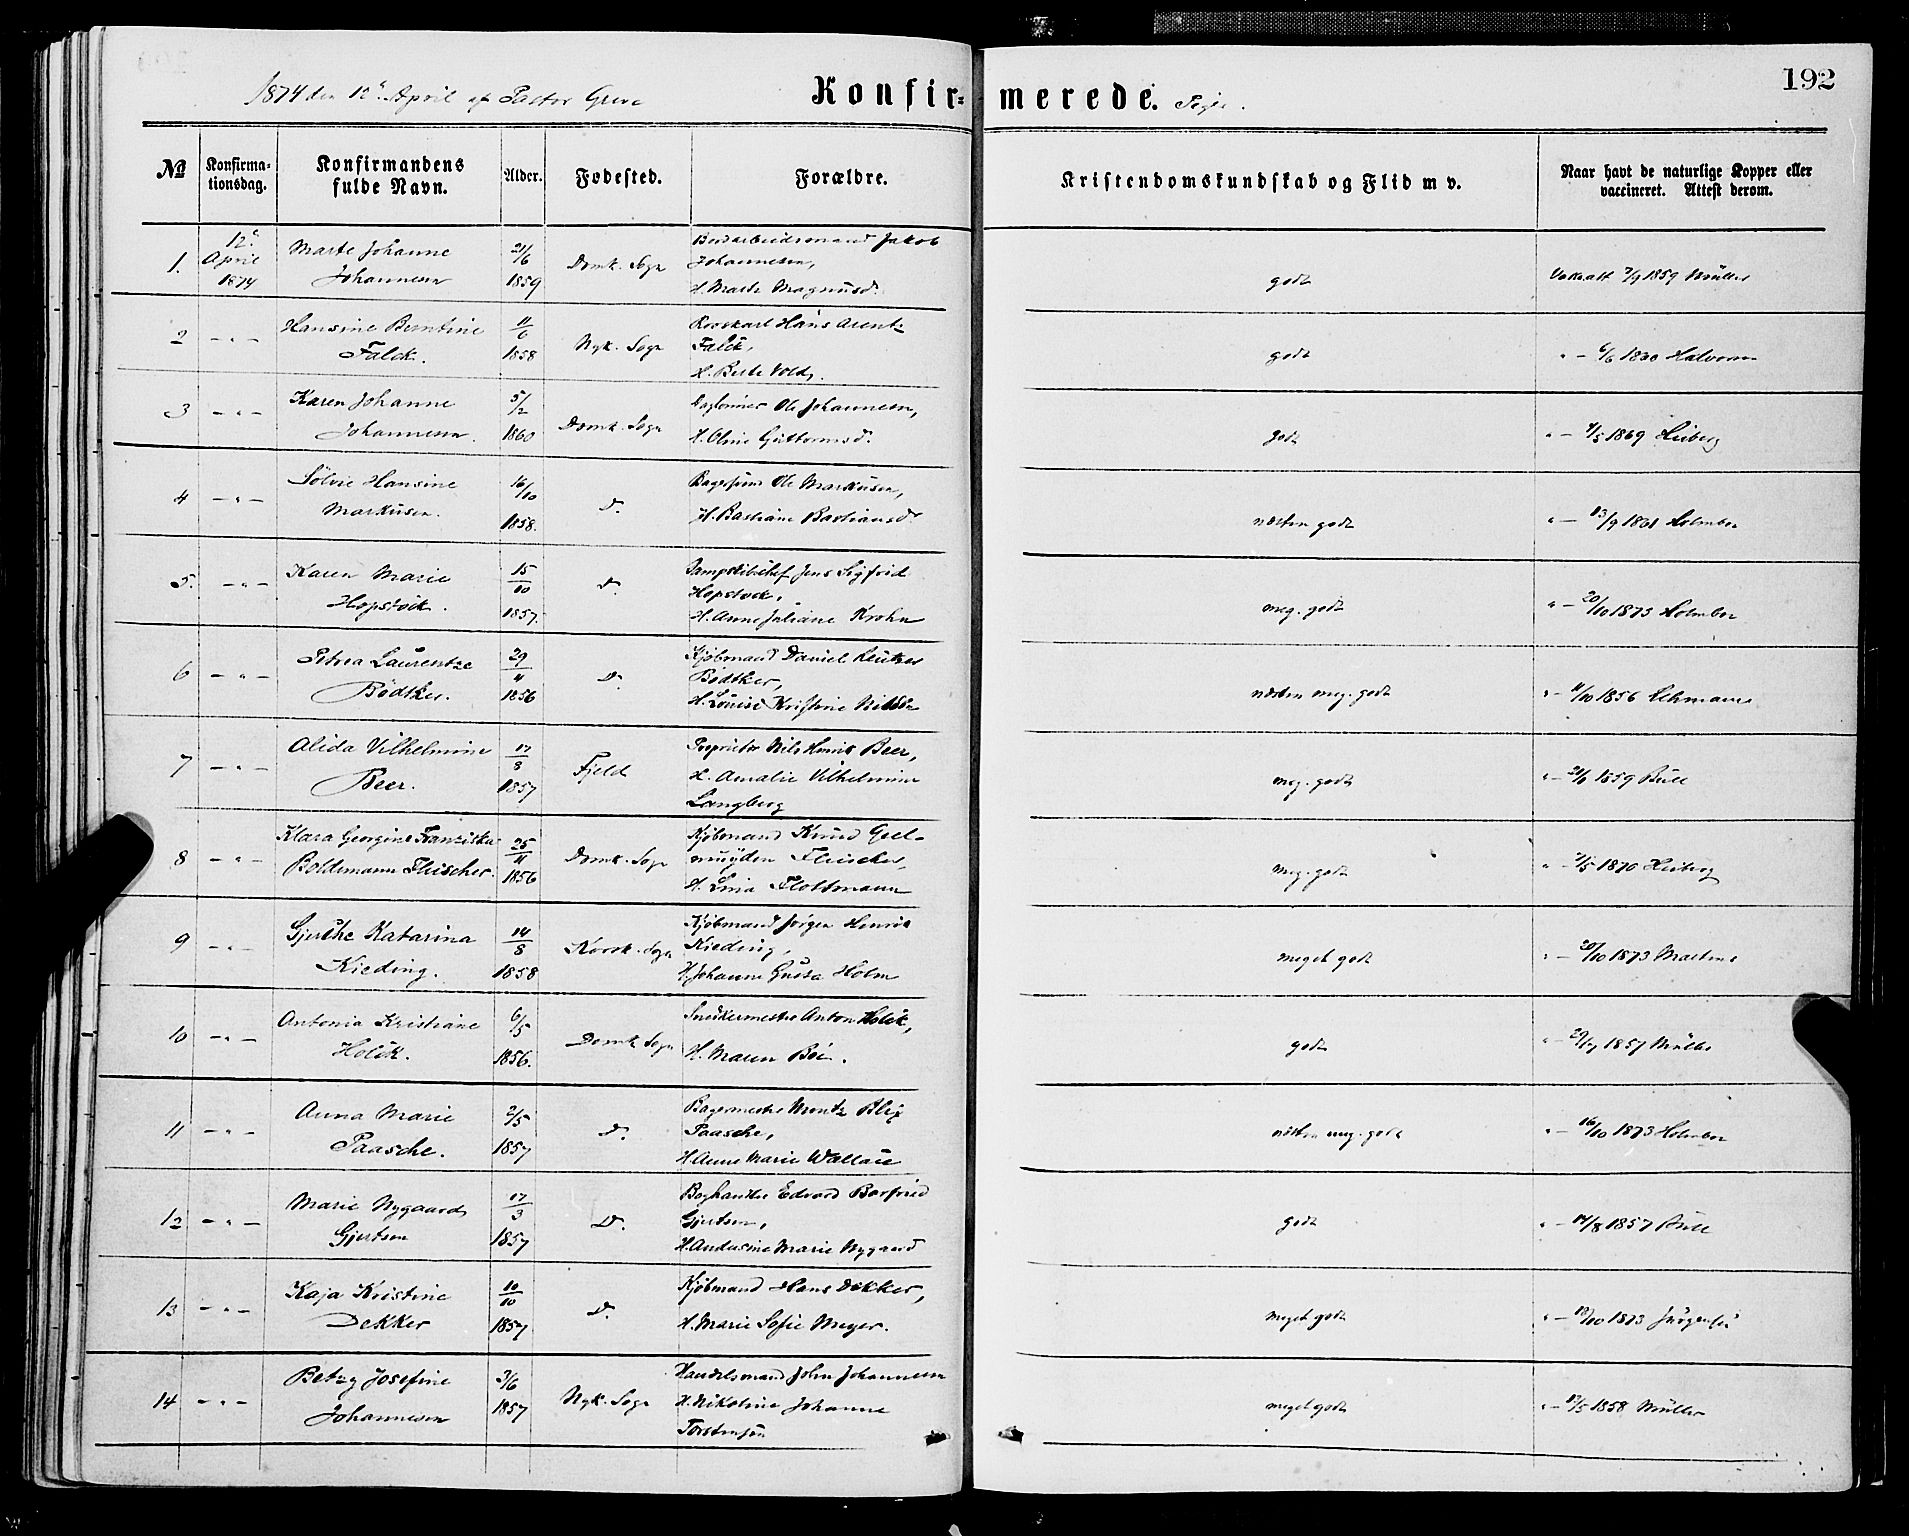 192
1874 den 12te April af Pastor Greve
Konfirmerede. Piger.
No
Konfirmationsdag.
Konfirmandens fulde Navn.
Alder.
Fødested.
Forældre.
Kristendomskundskab og Flid m v.
Naar havt de naturlige Kopper eller vaccineret. Attest derom.
1. 12te April 1874 Marte Johanne Johannesen 21/6 1859 Domk. Sogn
Jakob Johannesen,
H. Marte Magnusd.
godt
1859 Müller
2 - " - Hansine Berntine Falck. 11/6 1858 Nyk. Sogn
Hans Arentz Falck,
H. Berte Vold.
godt
" - 6/6 Halvorsen
3 - " - Karen Johanne Johannesen. 5/2 1860 Domk. Sogn
Daglønner Ole Johannesen,
H. Oline Guttormsd.
godt
" - 1869 Heiberg
4 - " - Sølvie Hansine Markusen. 16/10 1858. D.
Ole Markusen,
H. Bastiane Bastiansd.
næsten godt
" - 13/9 1861 Holmboe
5. - " - Karen Marie Hopstock. 15/10 1857. D.
Jens Sigfrid Hopstock,
H. Anne Juliane Krohn
meg. godt
" - 20/10 1873 Holmboe
6 - " - Petrea Laurentze Bødtker. 29/11 1856 D.
Kjøbmand Daniel Bødtker,
H. Louise Kristine
næsten meg. godt
" - 11/10 1856 Lehmann
7 - " - Alida Vilhelmine Beer. 17/8 1857 Fjeld
Proprietær Nils Henrik Beer,
H. Amalie Vilhelmine
Langberg
meg. godt
" - 1859 Bull
8 - " - Klara Georgine Franziska Boldemann Fleischer. 25/11 1856 Domk. Sogn
Kjøbmand Knud Geelmuyden Fleischer,
H. Lina Flottmann
meg. godt
" - 1870 Heiberg
9 - " - Gjerthe Katarina Kieding. 14/8 1858 Korsk. Sogn
Kjøbmand Jørgen Henrik Kieding,
H. Johanne Gusta Holm
meget godt
" - 20/10 1873 Martens
10 - " - Antonia Kristiane Holck. 6/5 1856. Domk Sogn
Snedkermester Anton Holck,
H. Maren Bøe.
godt
" - 1857 Müller
11 - " - Anna Marie Paasche. 2/5 1857 D.
Bagermester Montz Blix Paasche,
H. Anne Marie Wallace
næsten meg. godt
" - 16/10 1873 Holmboe
12 - " - Marie Nygaard Gjertsen 17/3 1857 D.
Boghandler Edvard Barfried Gjertsen,
H. Andersine Marie Nygaard
godt
" - 14/8 1857 Bull
13 - " - Kaja Kristine Dekker 10/10 1857 D.
Kjøbmand Hans Dekker,
H. Marie Sofie Meyer.
meget godt
" - 18/10 1873 Jürgens
14 - " - Betzy Josefine Johannesen 3/6 1857 Nyk. Sogn
Handelsmand John Johannesen
H. Nikoline Johanne
Torstensen
meget godt
" - 17/5 1858 Müller